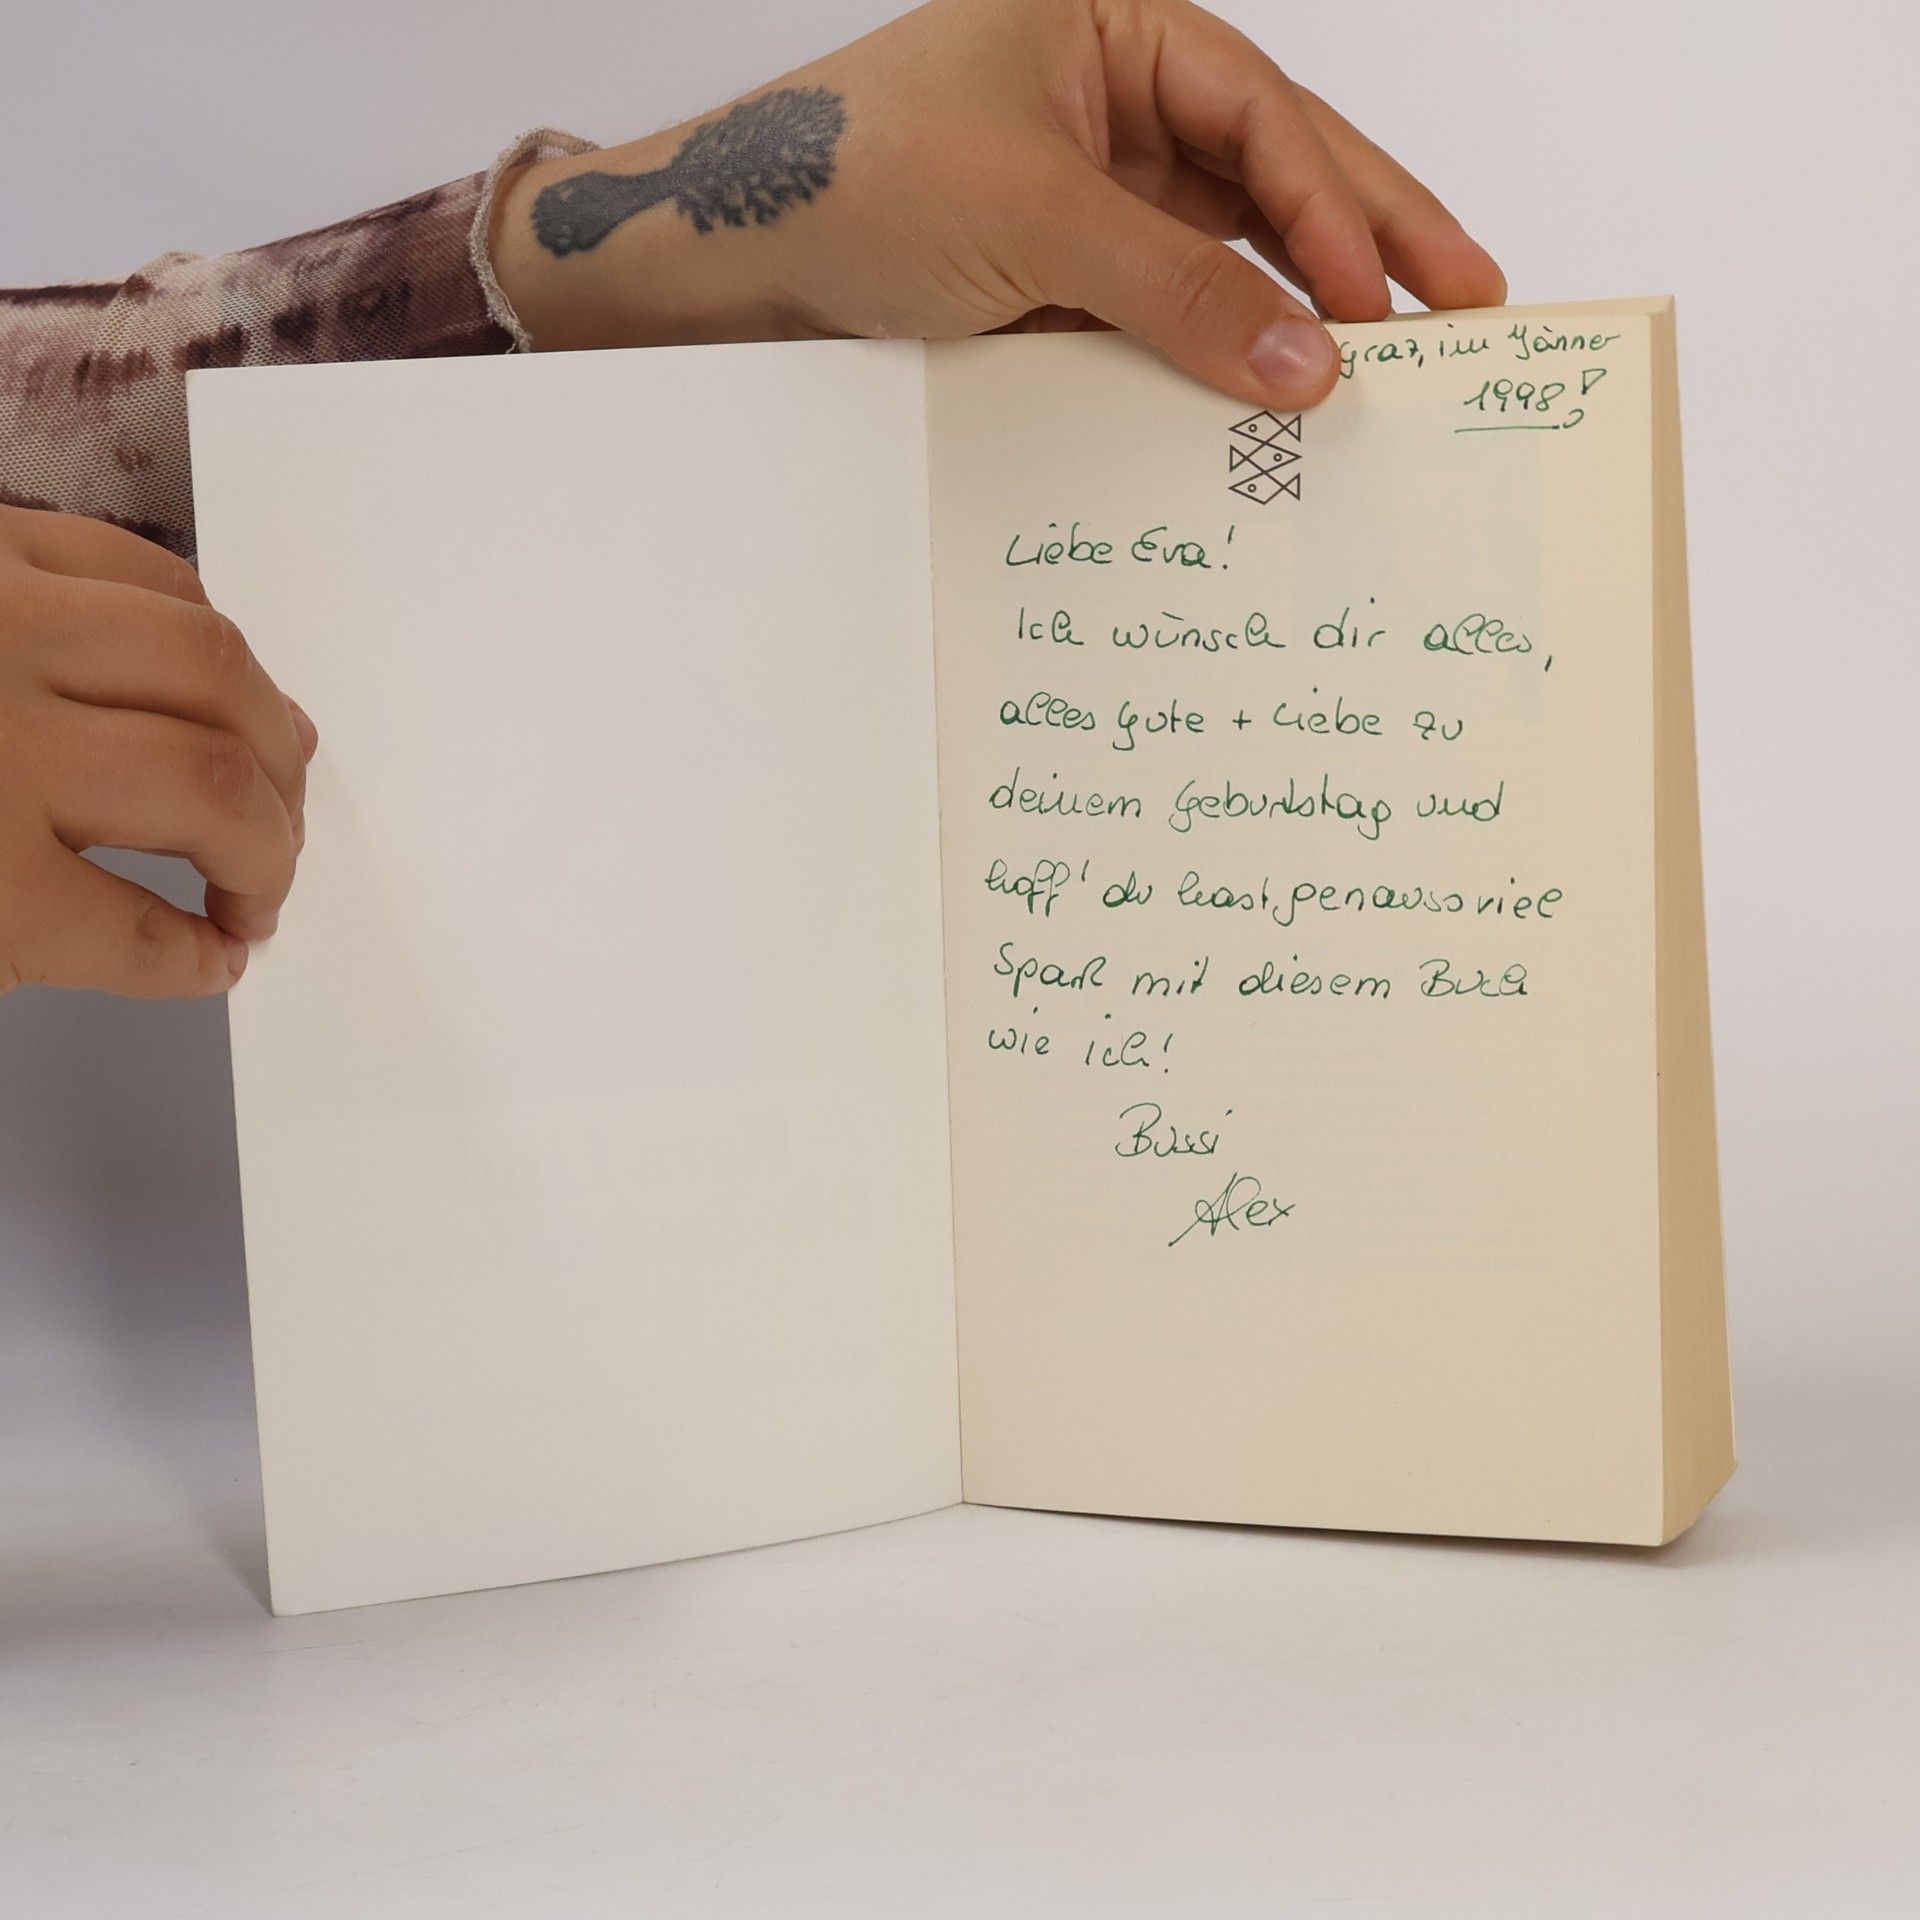 Graz, im Jänner
1998!
Liebe Eva!
Ich wünsch dir alles,
alles Gute + Liebe zu
deinem Geburtstag und
hoff' du hast genausoviel
Spaß mit diesem Buch
wie ich!
Bussi
Alex